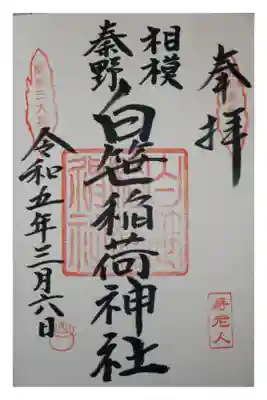 奉拝
相模
秦野
白笹稲荷神社
令和五年三月六日
寿老人